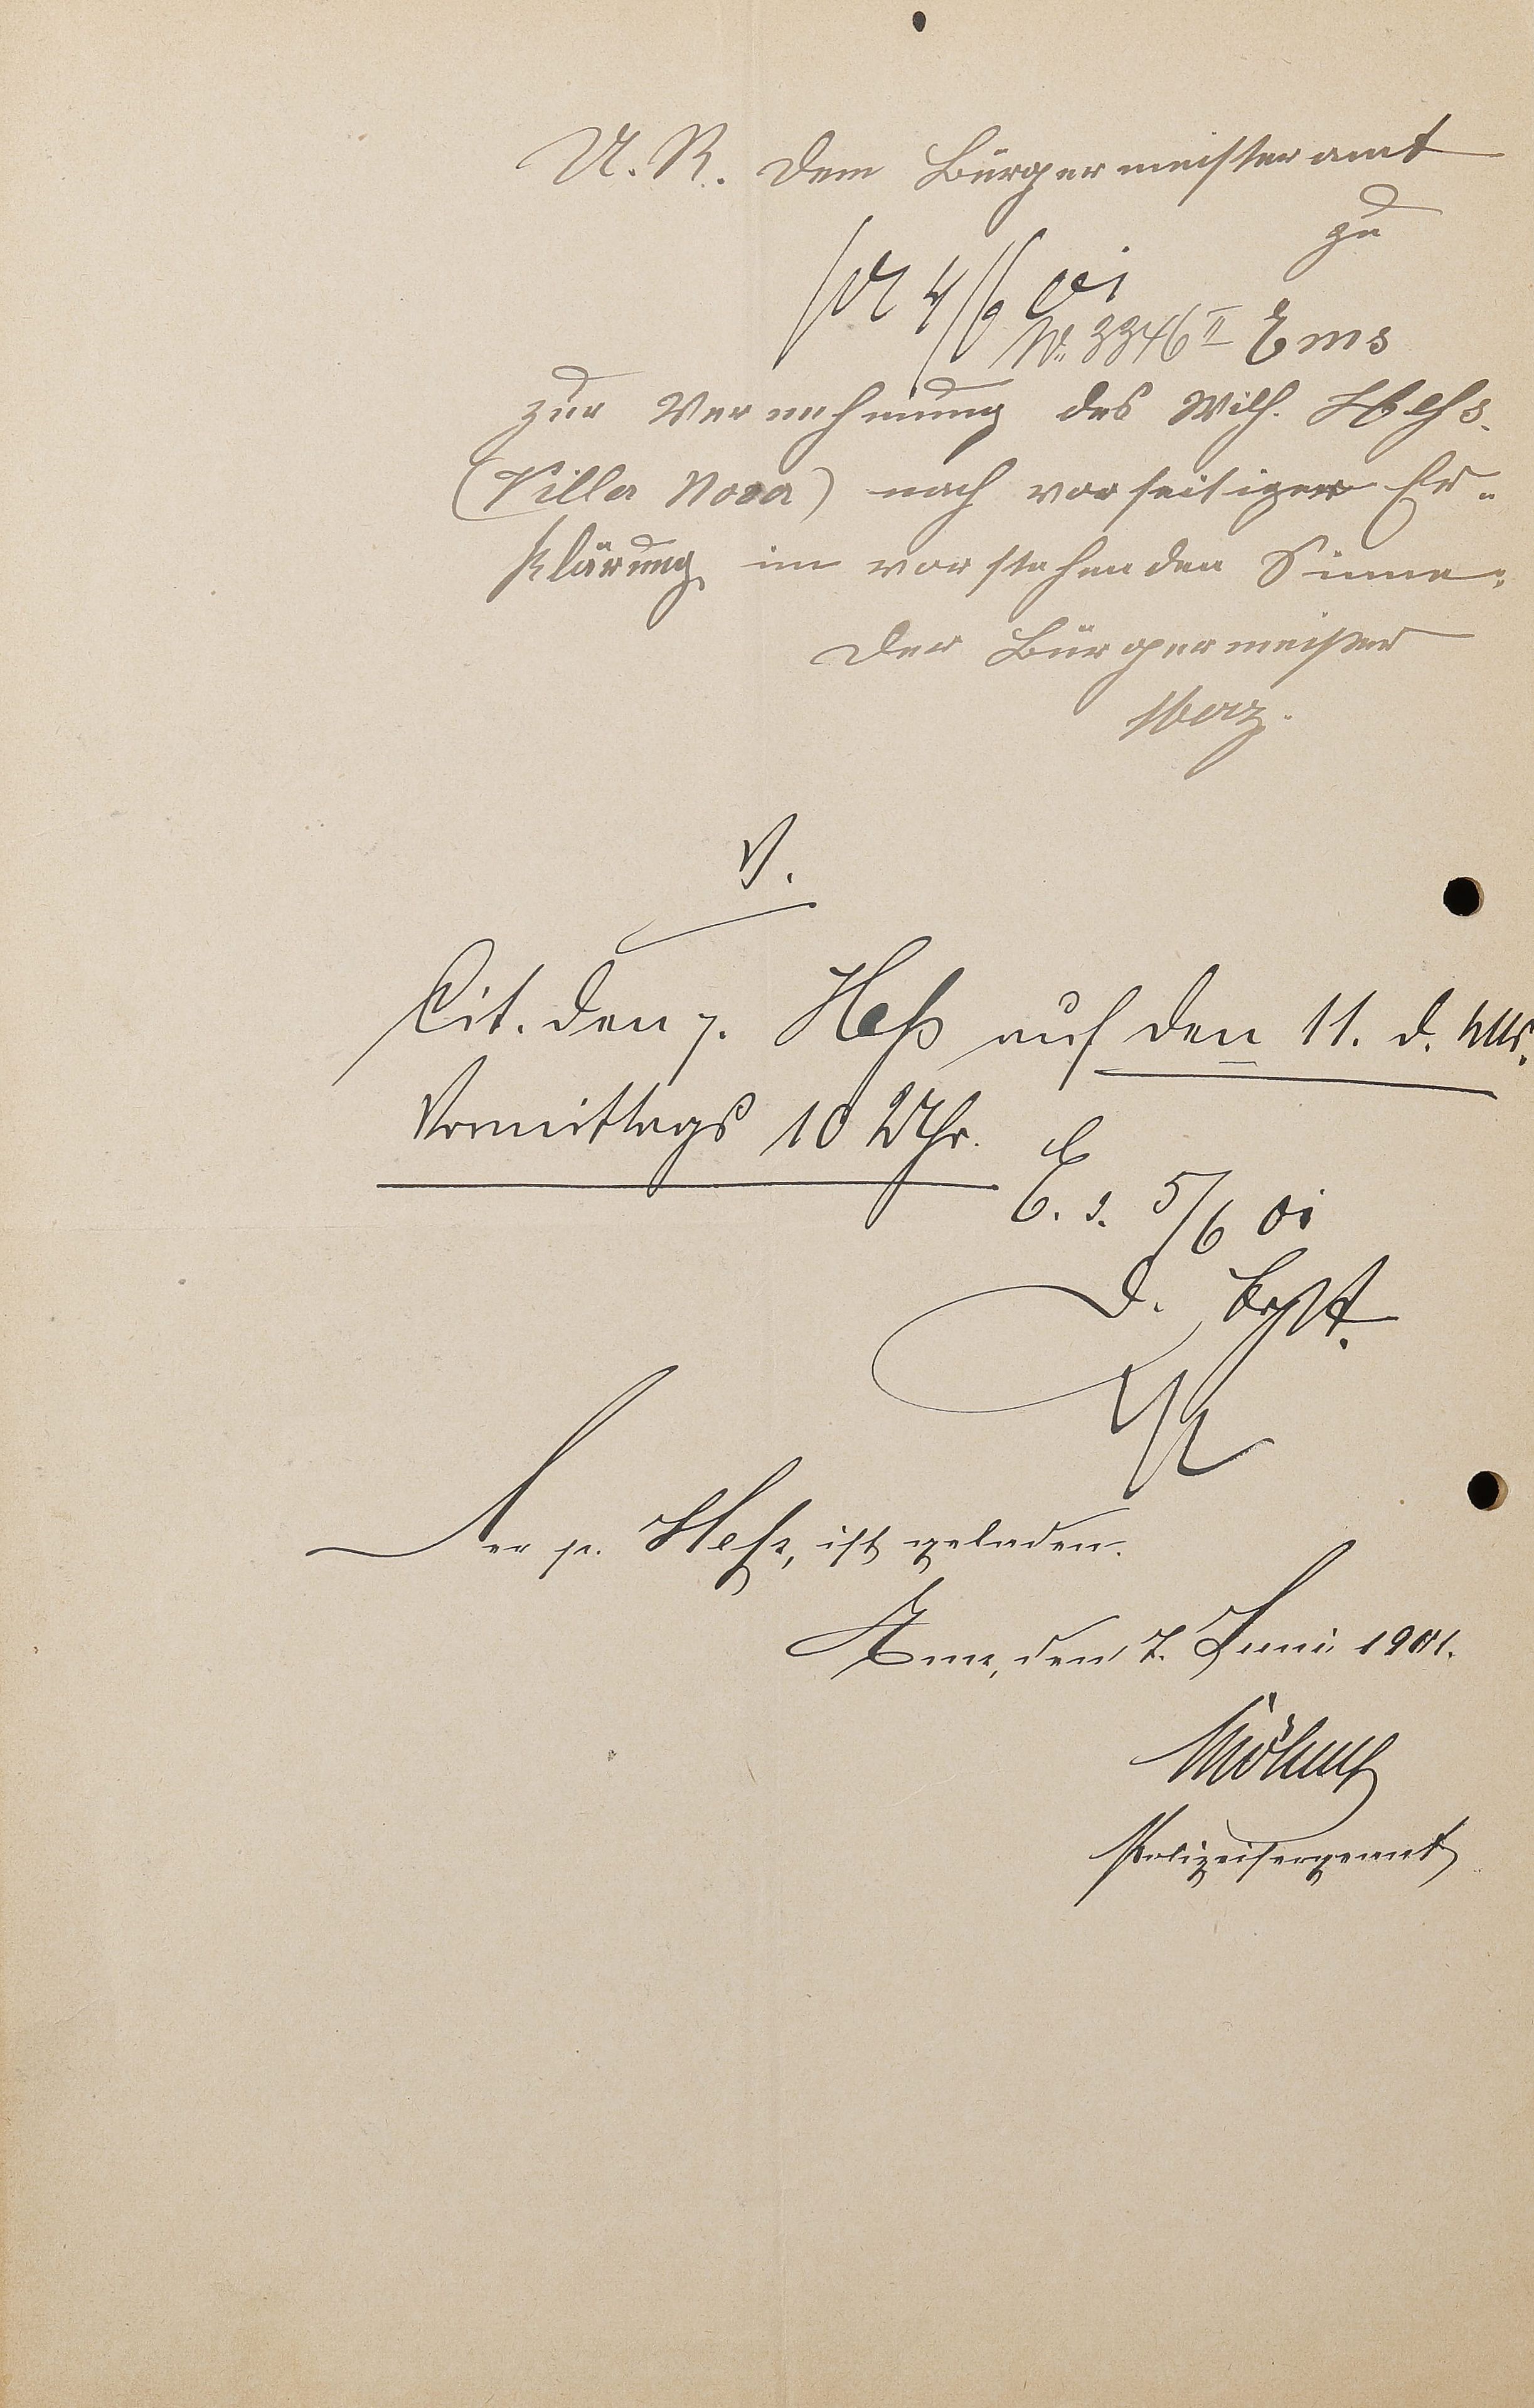 U. R. dem Bürgermeisteramt
zu
pr 4/6 01
No. 3346 II Ems
zur Vernehmung des Wilh. Heß.
(Villa Nova) nach vorseitiger Er-
klärung im vorstehenden Sinne.
Der Bürgermeister
V.
Cit. den p. Heß auf den 11. d. Mts.
Vormittags 10 Uhr.
E. d. 5/6 01
D. Bgstr.
Der p. Heß, ist geladen.
Ems, den 7. Juni 1901.
Polizeisergeant